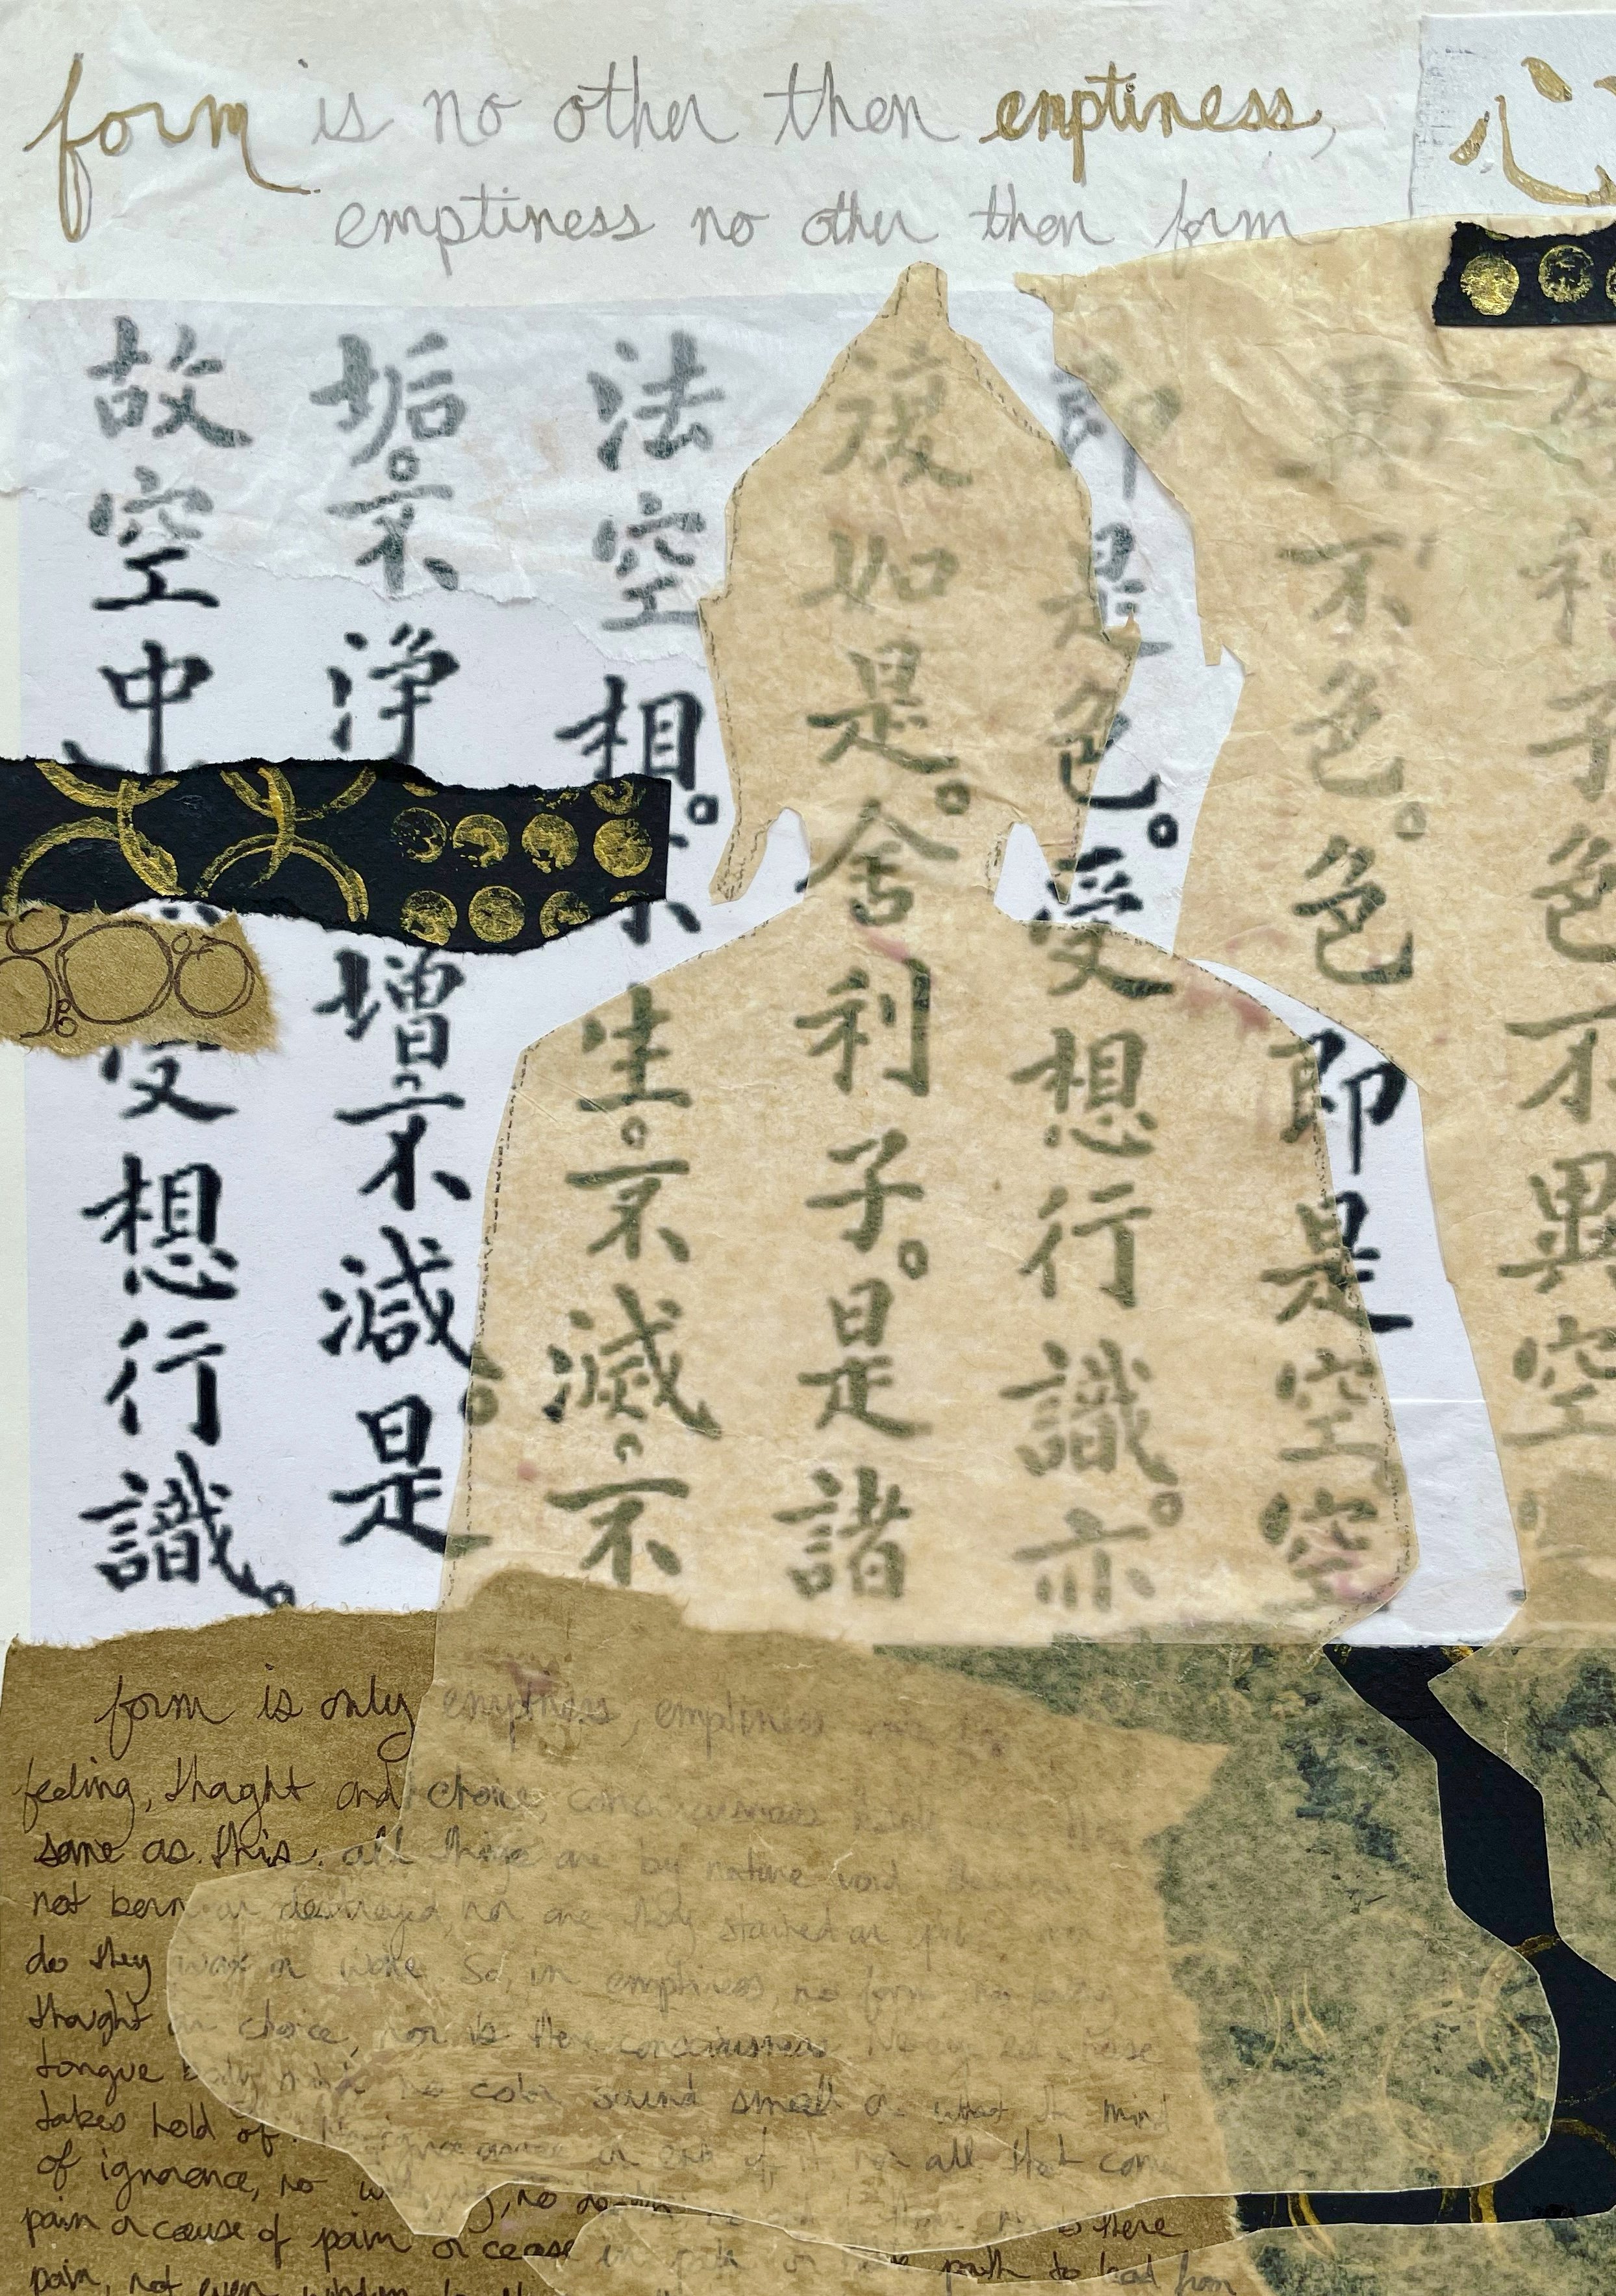 form is no other then emptiness,
emptiness no other then form
心
利子色不異空
不色。色即是空。空
即是色。受想行識。亦
復如是。舍利子。是諸
法空相。不生。不滅。不
垢。不浄增。不減。是
故空中受想行識。
form is only emptiness, emptiness
feeling, thaght and choice, consciousness
same as this. all things are by nature void
not born or destroyed, nor are they stained or
do they wax or wane. So, in emptiness, no form
thought or choice, nor is there consciousness. No eye ear nose
tongue body mind no color sound smell or what the mind
takes hold of. No ignorance or end of it nor all that
of ignorence, no withering, no death there
pain or cause of pain or cease in path to lead from
pain, not even